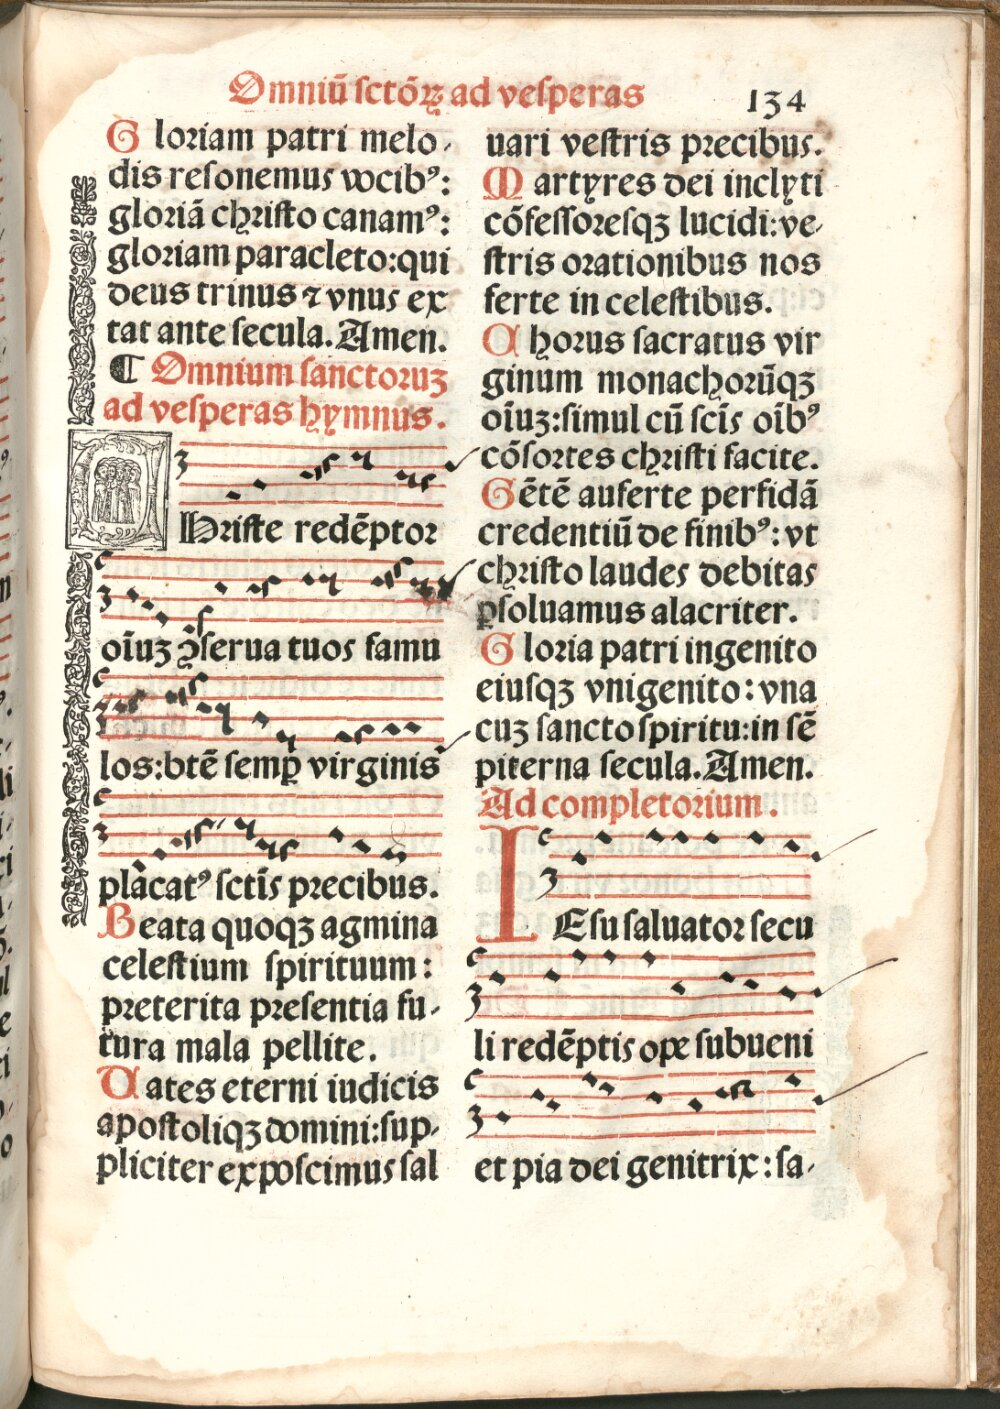 Omniū sctōꝝ ad vesperas
134
Gloriam patri melo-
dis resonemus vocibꝰ:
gloriā christo canamꝰ:
gloriam paracleto: qui
deus trinus ⁊ vnus ex
tat ante secula. Amen.
¶ Omnium sanctoruꝫ
ad vesperas hymnus.
Hriste redēptor
oīuꝫ ꝯserua tuos famu
los: btē semꝑ virginis
placatꝰ sctīs precibus.
Beata quoqꝫ agmina
celestium spirituum:
preterita presentia fu-
tura mala pellite.
Uates eterni iudicis
apostoliqꝫ domini: sup-
pliciter exposcimus sal
uari vestris precibus.
Martyres dei inclyti
cōfessoresqꝫ lucidi: ve-
stris orationibus nos
ferte in celestibus.
Chorus sacratus vir
ginum monachorūqꝫ
oīuꝫ: simul cū scīs oībꝰ
cōsortes christi facite.
Gētē auferte perfidā
credentiū de finibꝰ: vt
christo laudes debitas
ꝑsoluamus alacriter.
Gloria patri ingenito
eiusqꝫ vnigenito: vna
cuꝫ sancto spiritu: in sē
piterna secula. Amen.
Ad completorium.
IEsu saluator secu
li redēptis ope subueni
et pia dei genitrix: sa-